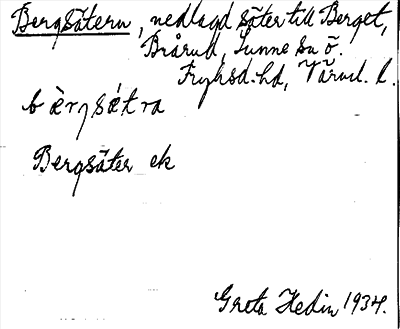 Bergsätern, nedlagd säter till Berget,
Brårud, Sunne sn ö.
Fryksd. hd, Värml. l.
bæ̀rjsǽtra
Bergsäter ek
Greta Hedin 1934.